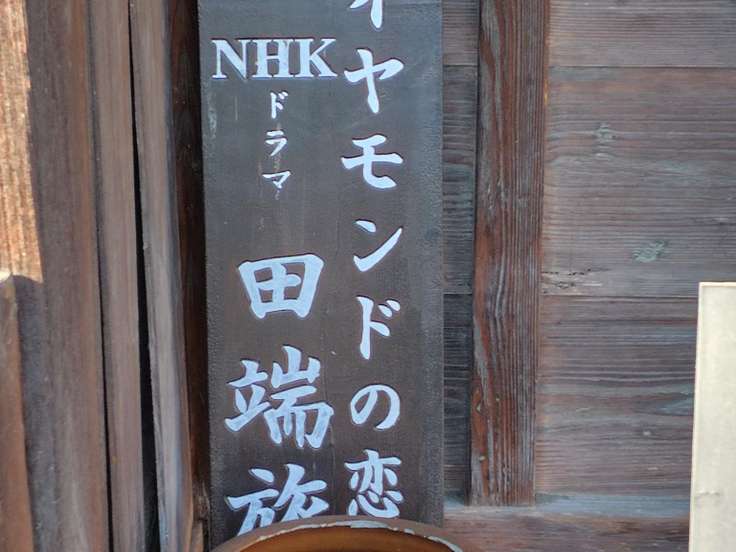 イヤモンドの恋
NHK
ドラマ
田端旅